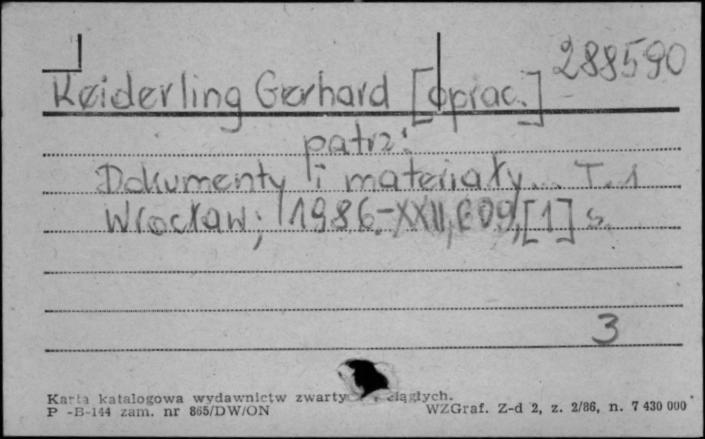 288590
Keiderling Gerhard [oprac.]
patrz:
Dokumenty i materiały... T. 1
Wrocław; 1986.-XXII, 609, [1] s.
3
Karta katalogowa wydawnictw ciągłych.
P -B-144 zam. nr 865/DW/ON
WZGraf. Z-d 2, z. 2/86, n. 7 430 000